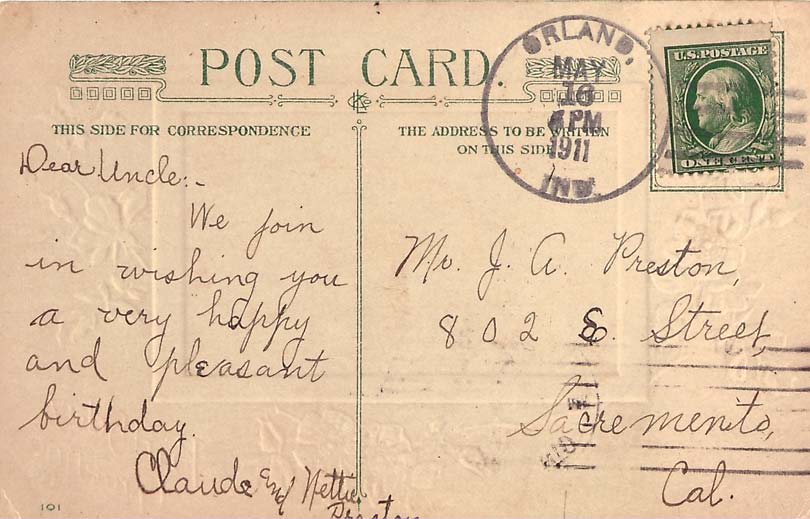 POST CARD.
THIS SIDE FOR CORRESPONDENCE
THE ADDRESS TO BE WRITTEN
ON THIS SIDE
ORLAND,
MAY
16
4 PM
1911
IND.
U.S. POSTAGE
ONE CENT
Dear Uncle:-
We join
in wishing you
a very happy
and pleasant
birthday.
Claude and Nettie
Preston
Mr. J. A. Preston,
802 E. Street,
Sacremento,
Cal.
101